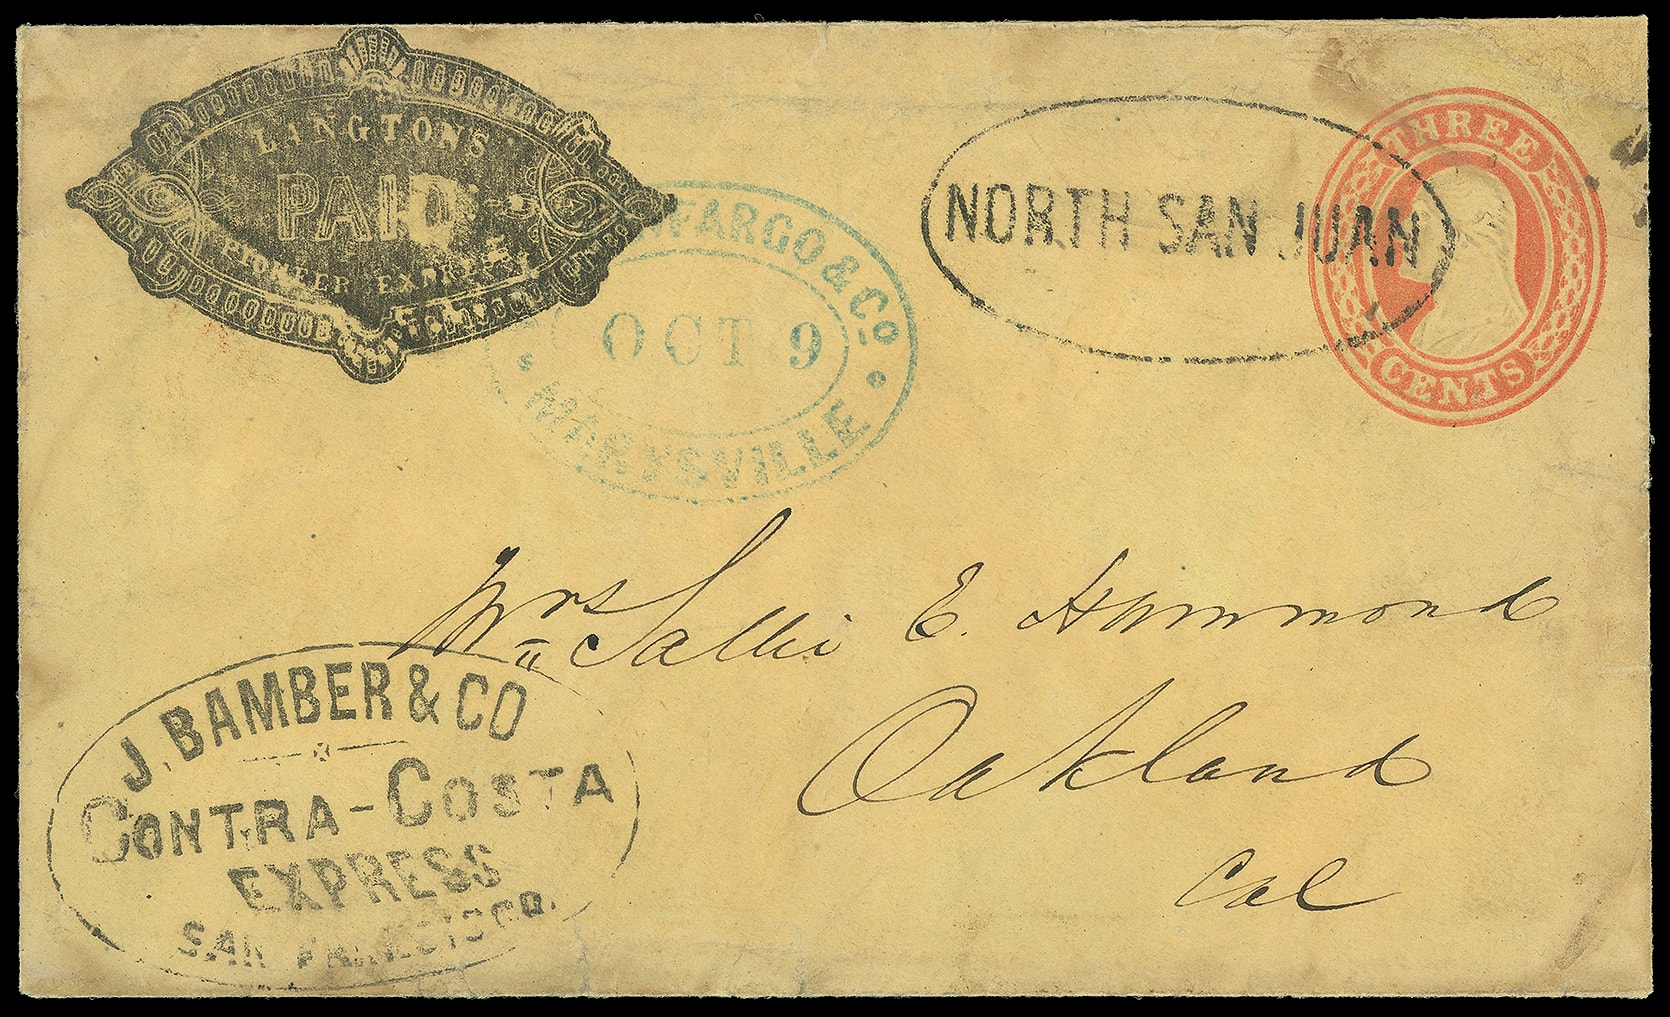 LANGTON'S
PAID
PIONEER EXPRESS
FARGO & Co
OCT 9
MARYSVILLE
NORTH SAN JUAN
THREE
CENTS
Mrs Sallie E. Hammond
Oakland
Cal
J. BAMBER & CO
CONTRA-COSTA
EXPRESS
SAN FRANCISCO.